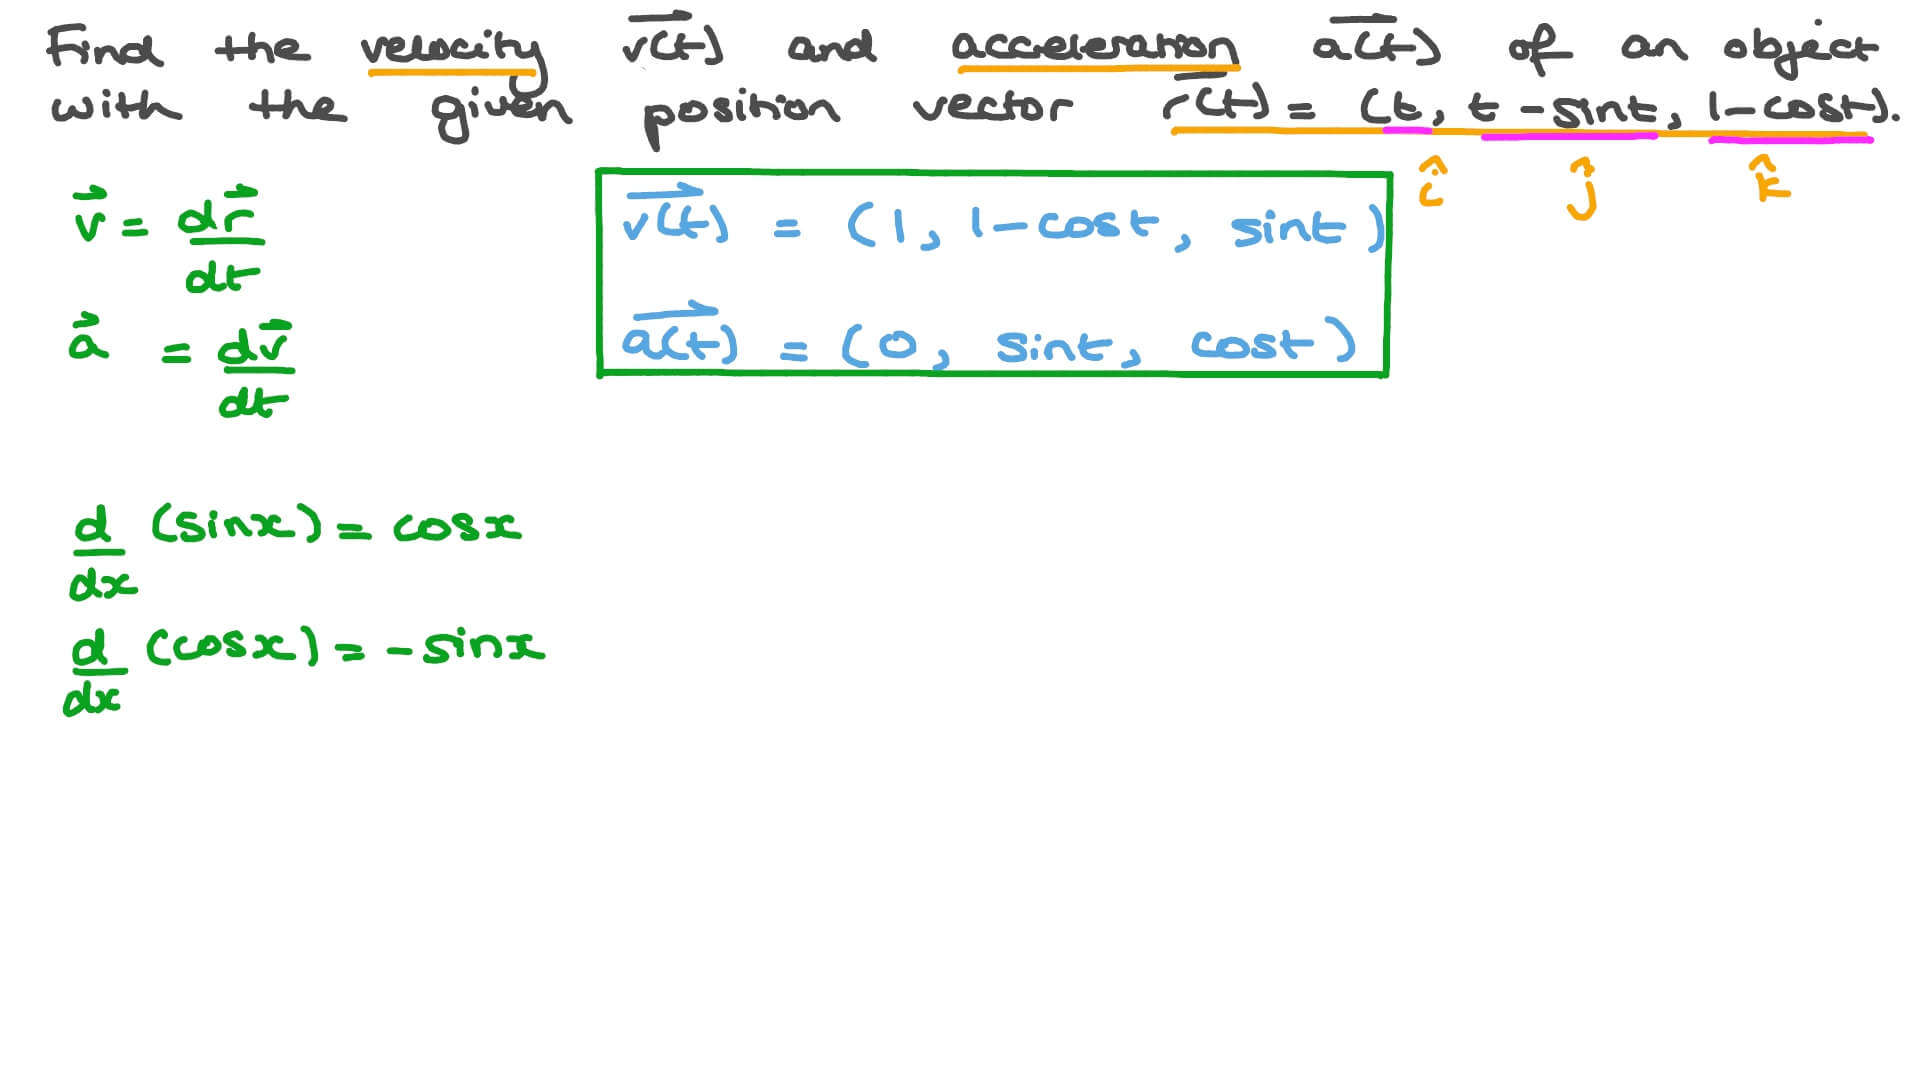 Find the velocity v(t) and acceleration a(t) of an object
with the given position vector r(t) = (t, t - sint, 1 - cost).
î ĵ k̂
v⃗ = dr⃗/dt
v(t) = (1, 1 - cost, sint)
a⃗ = dv⃗/dt
a(t) = (0, sint, cost)
d/dx (sinx) = cosx
d/dx (cosx) = -sinx